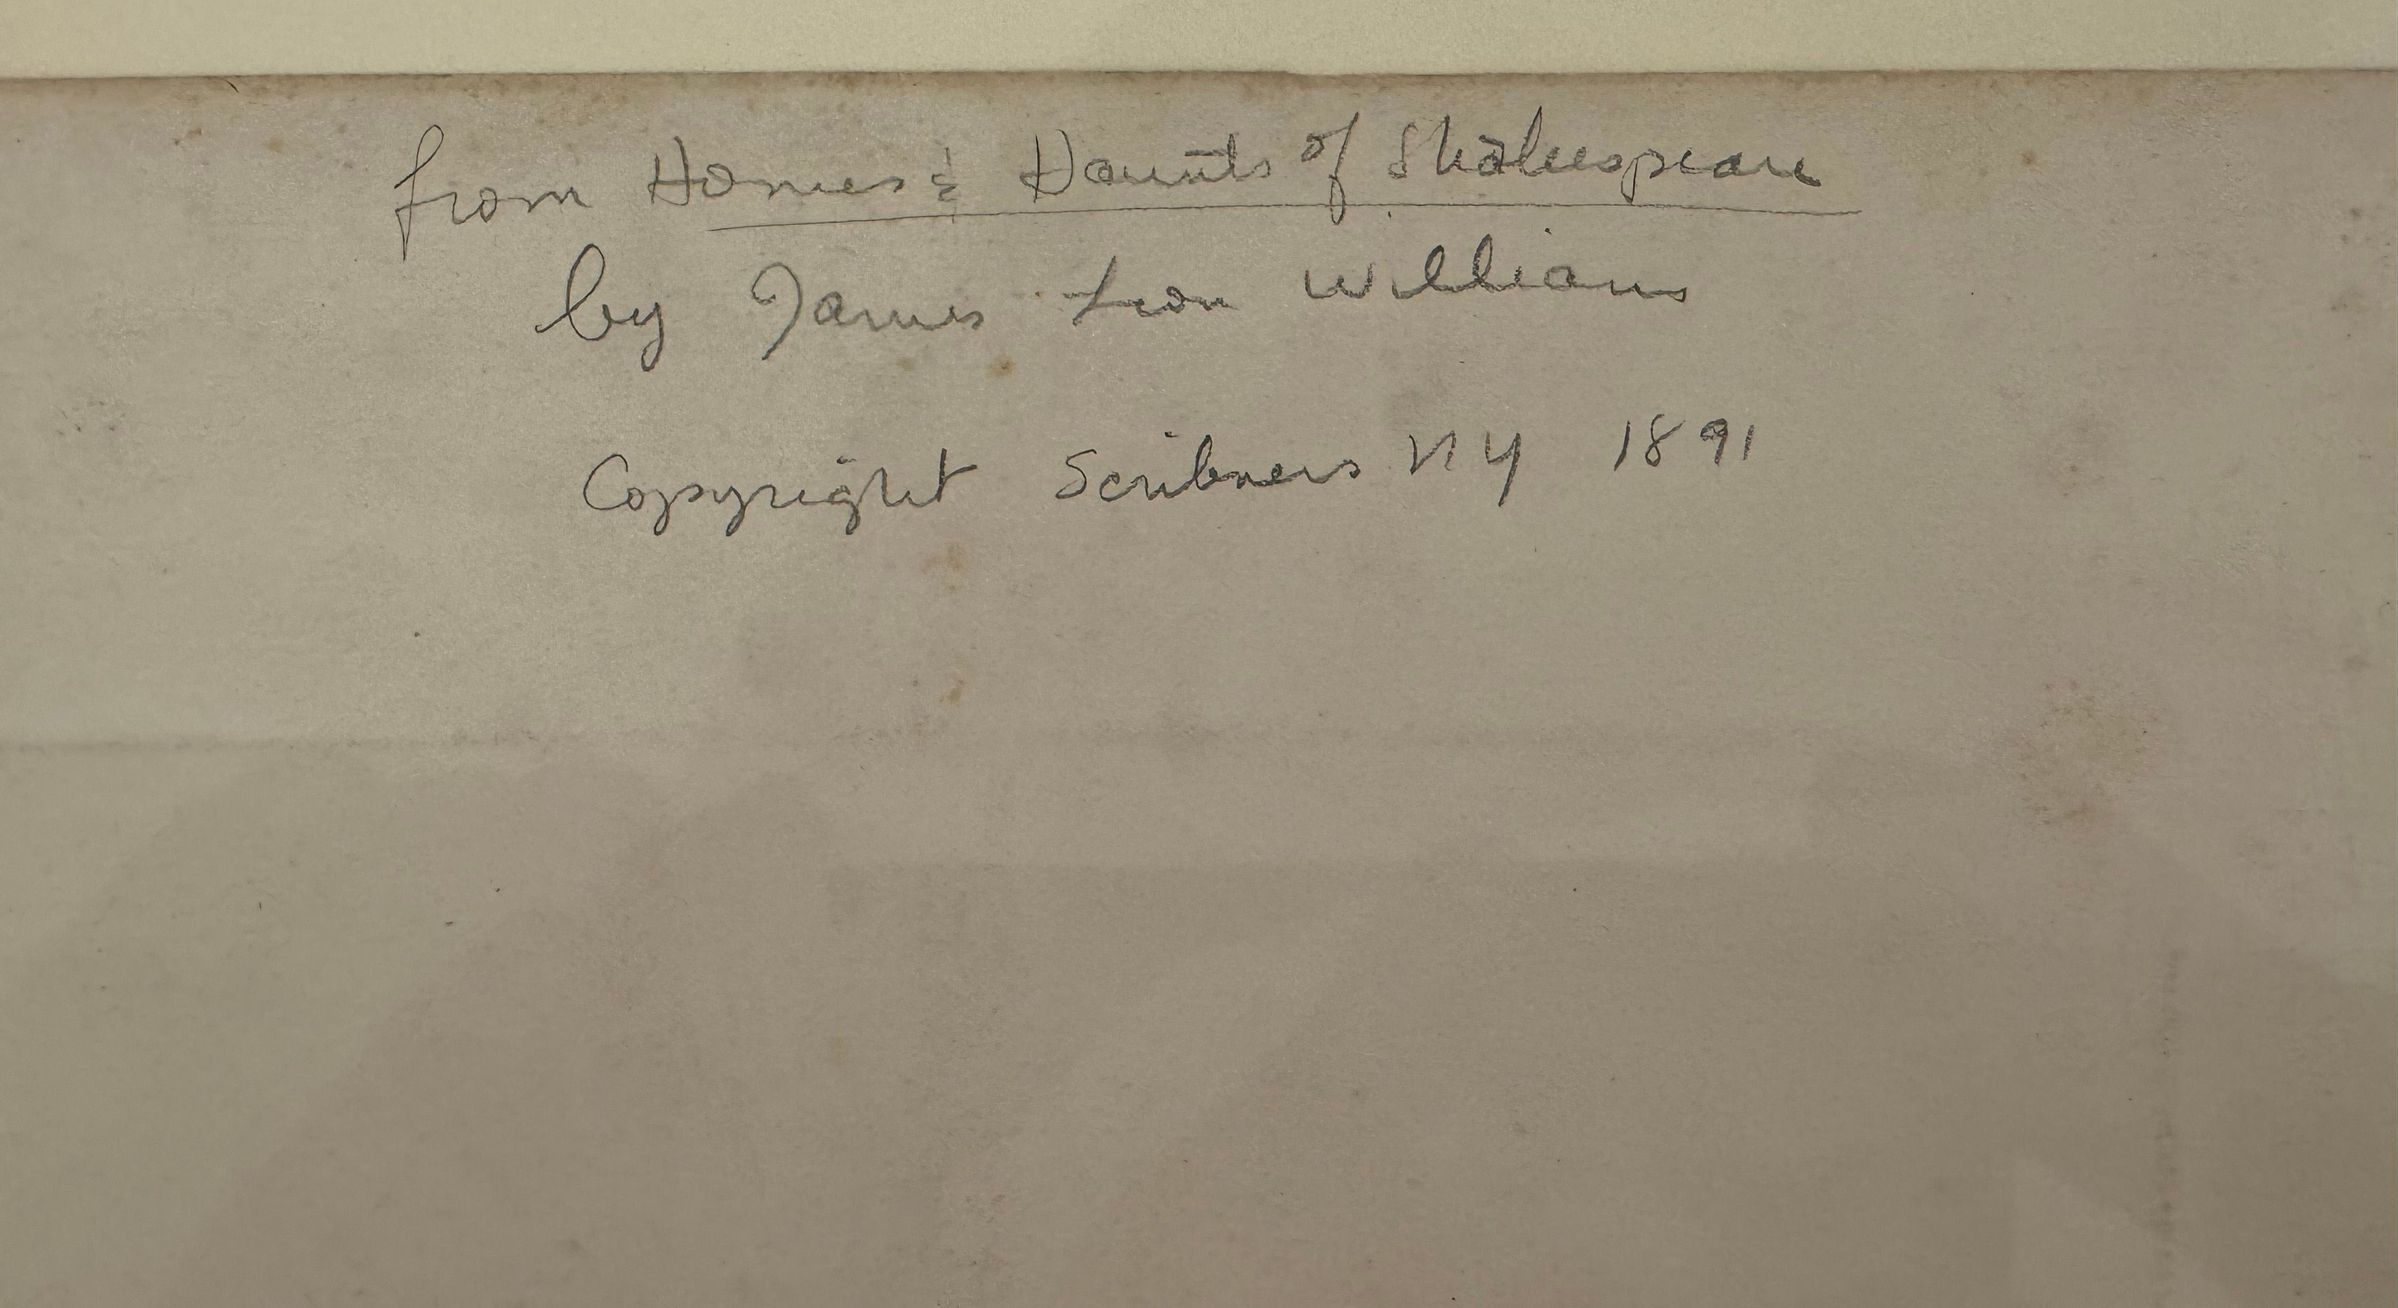 from Homes & Haunts of Shakespeare
by James Leon Williams
Copyright Scribners NY 1891